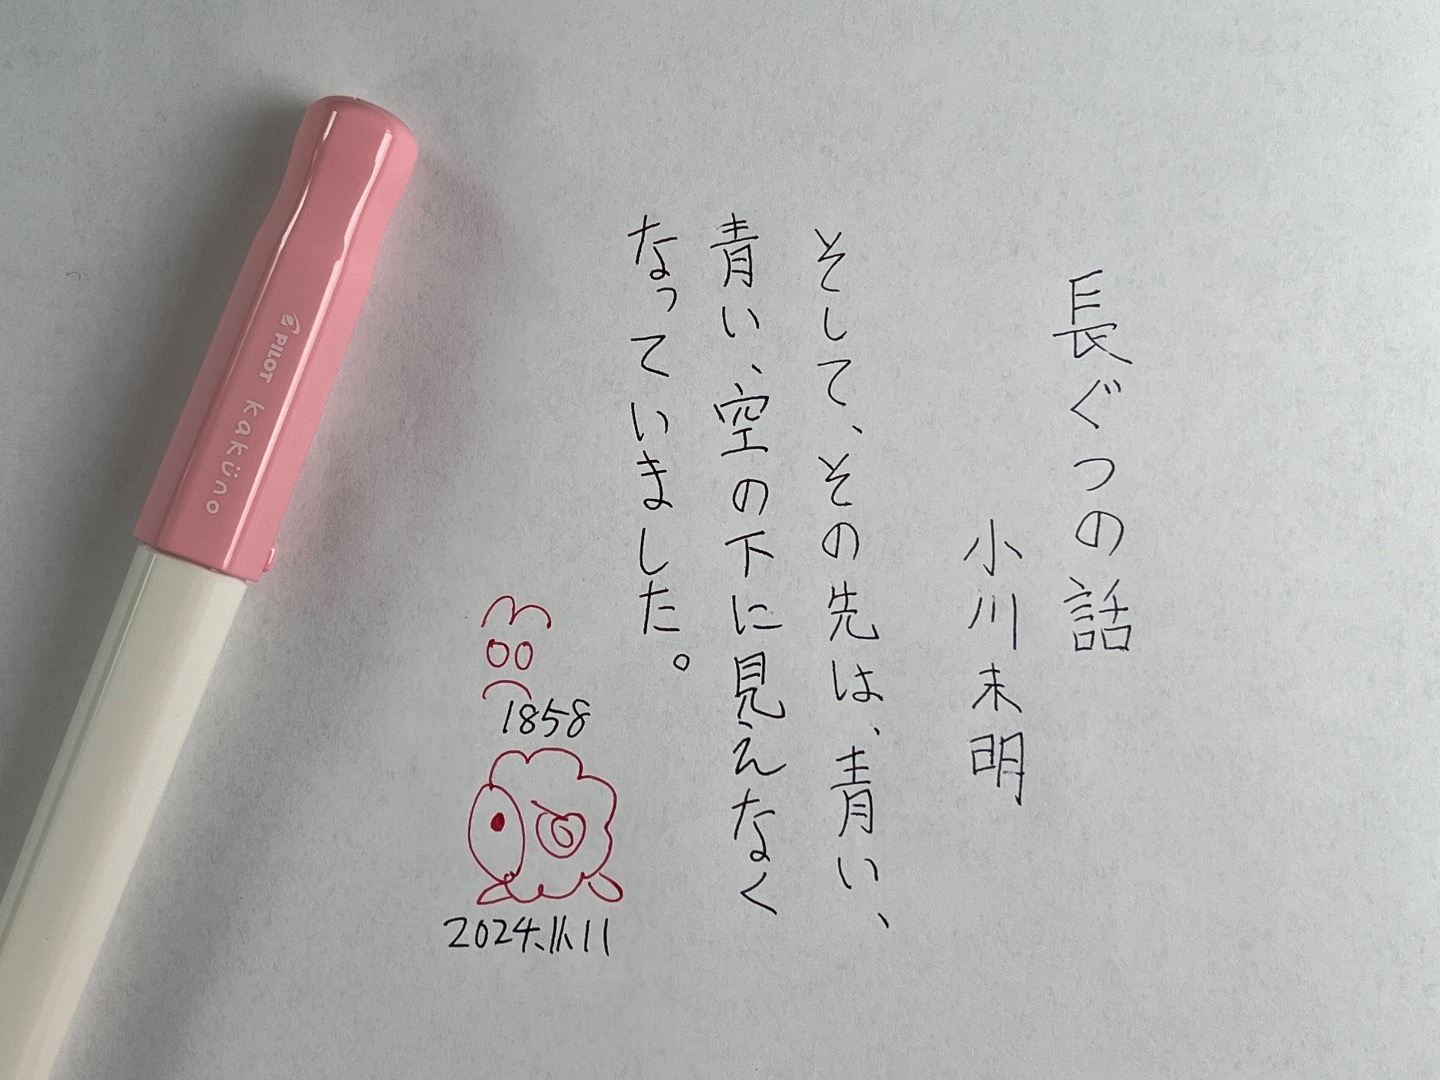 長ぐつの話
小川未明
そして、その先は、青い、
青い、空の下に見えなく
なっていました。
1858
2024.11.11
PILOT kaküno